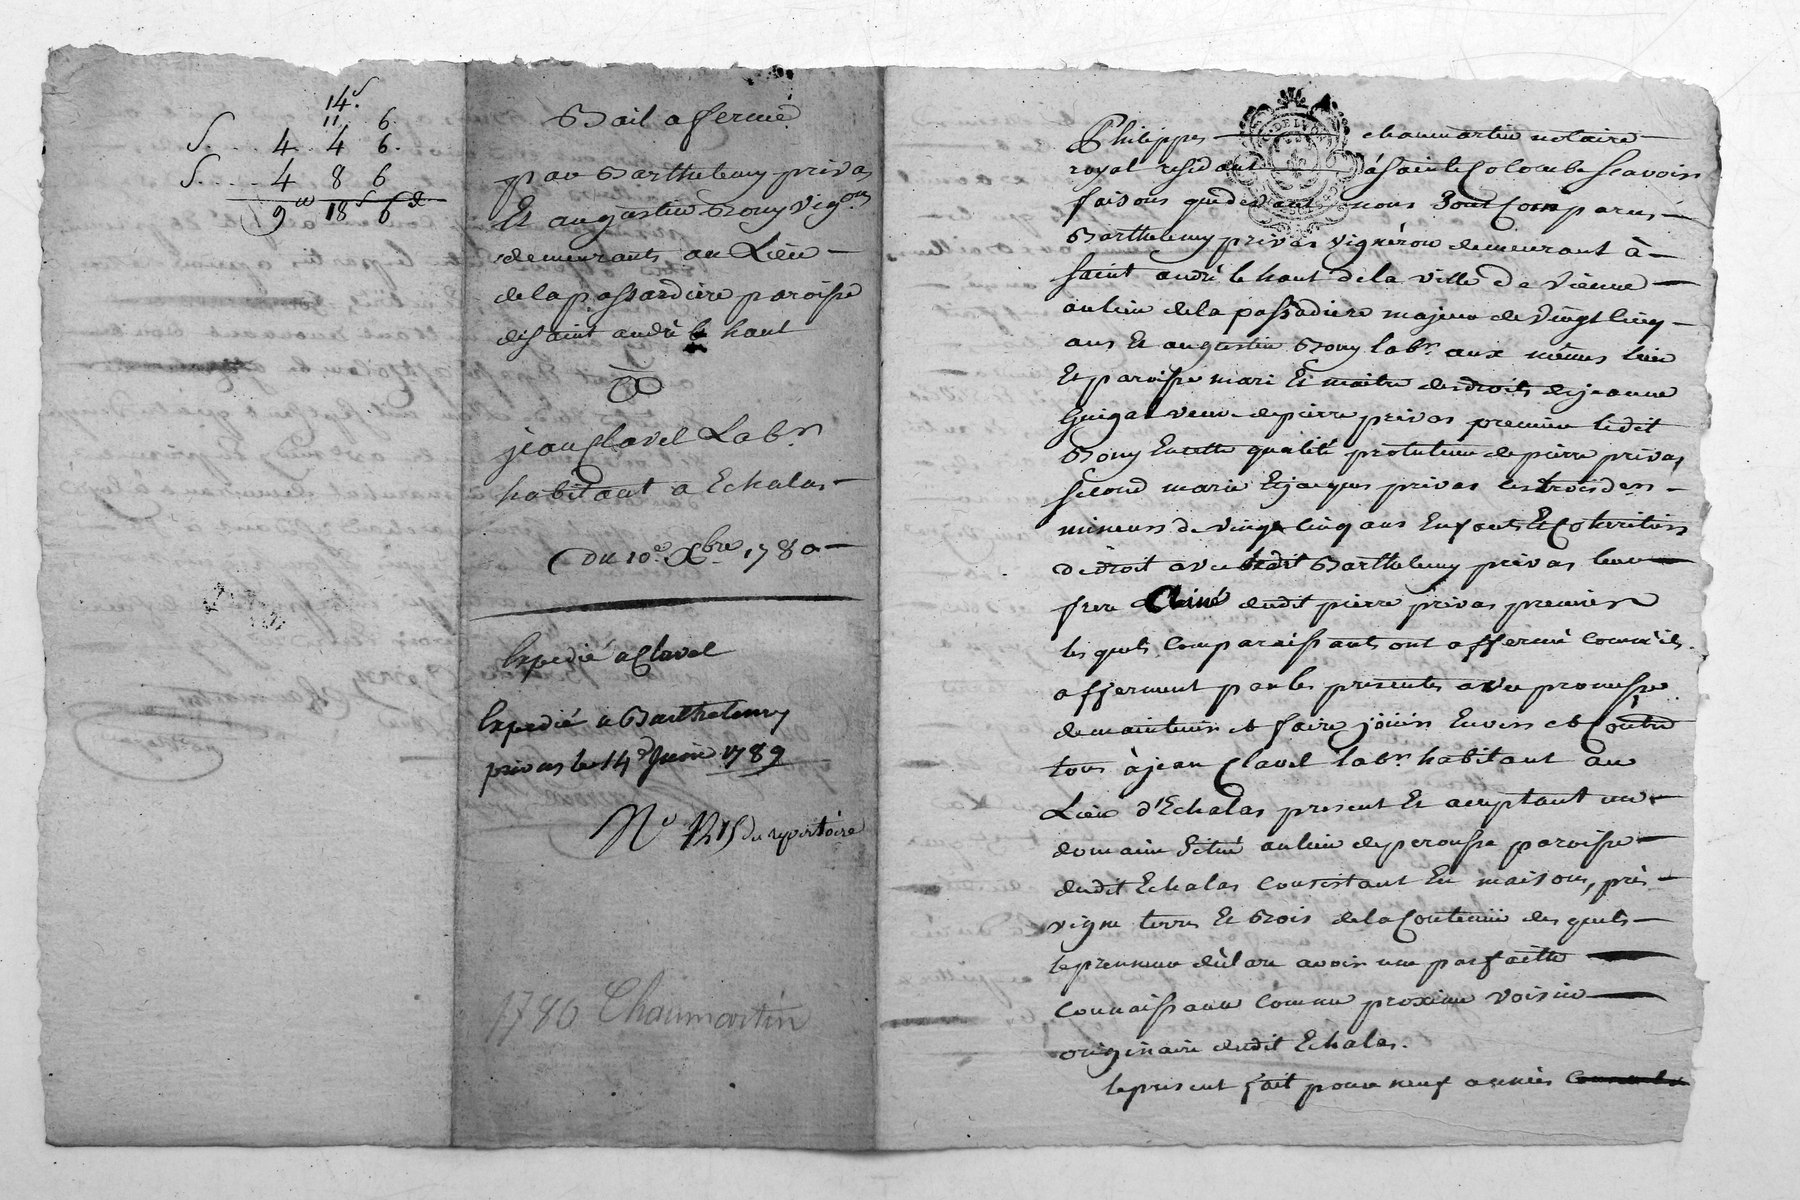 14s
11 6
S. 4. 4 6.
S. 4 8 6
9 18s 6d
Bail a fermé
par Barthelemy privas
Et augustin Bony vigon
demeurants au Lieu
de la passardiere paroisse
de saint andré le haut
A
jean Clavel Labr
habitant a Echalas
Du 10e Xbre 1780
Expedié a Clavel
Expedié a Barthelemy
privas le 14e Juin 1789
No du repertoire
1780 Chaumartin
DE LYON
Philippes chaumartin notaire
royal residant à sainte Colombe scavoir
faisons que devant nous sont Comparus
Barthelemy privas vigneron demeurant à
saint andré le haut de la ville de vienne
au lieu de la passadiere majeur de vingt cinq
ans Et augustin Bony labr aux mêmes lieu
Et paroisse mari Et maitre des droits de jeanne
Guigal veuve de pierre privas premier ledit
Bony En cette qualité protuteur de pierre privas
second marie Et jacques privas les trois
mineurs de vingt cinq ans Enfants Et Coheritiers
de droit avec ledit Barthelemy privas leur
frere Ainé dudit pierre privas premier
les quels Comparaissants ont affermé comm'ils
afferment par les presentes avec promesse
de maintenir et faire jouir Envers et Contre
tous à jean Clavel labr habitant au
Lieu d'Echalas present Et acceptant un
domaine situé au lieu de perousse paroisse
dudit Echalas Consistant En maison, prés
vigne terre Et Bois de la Contenue des quels
le preneur déclare avoir une parfaitte
Connaissance Comme proxime voisin
originaire dudit Echalas.
le present fait pour neuf années